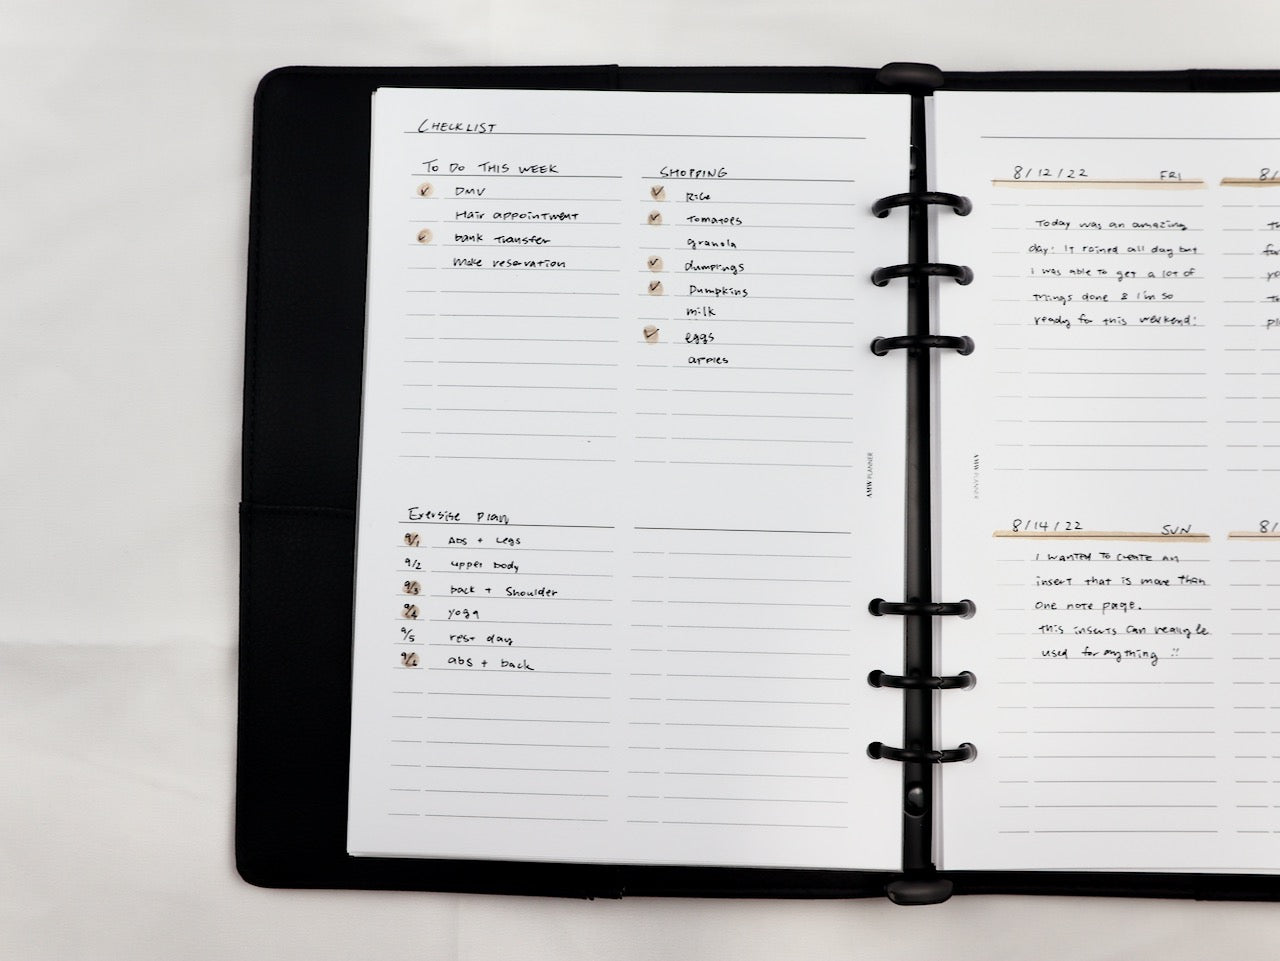 CHECKLIST
TO DO THIS WEEK
✓ DMV
Hair appointment
✓ bank transfer
Make reservation
SHOPPING
✓ Rice
✓ Tomatoes
granola
✓ dumplings
✓ Pumpkins
milk
✓ eggs
apples
Exersise plan
9/1 Abs + Legs
9/2 upper body
9/3 back + Shoulder
9/4 yoga
9/5 rest day
9/6 abs + back
AMW PLANNER
8/12/22 FRI
Today was an amazing
day! It rained all day but
I was able to get a lot of
things done & I'm so
ready for this weekend!
8/
8/14/22 SUN
I WANTED TO CREATE an
insert that is more than
one note page.
this inserts can really be
used for anything !!
8/
AMW PLANNER